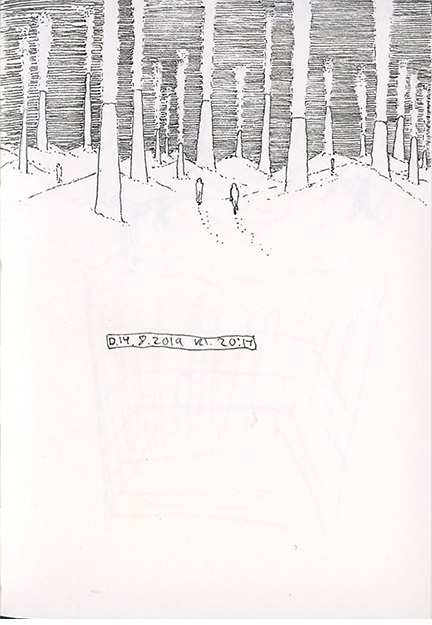 D.14.8.2019 Kl. 20:17